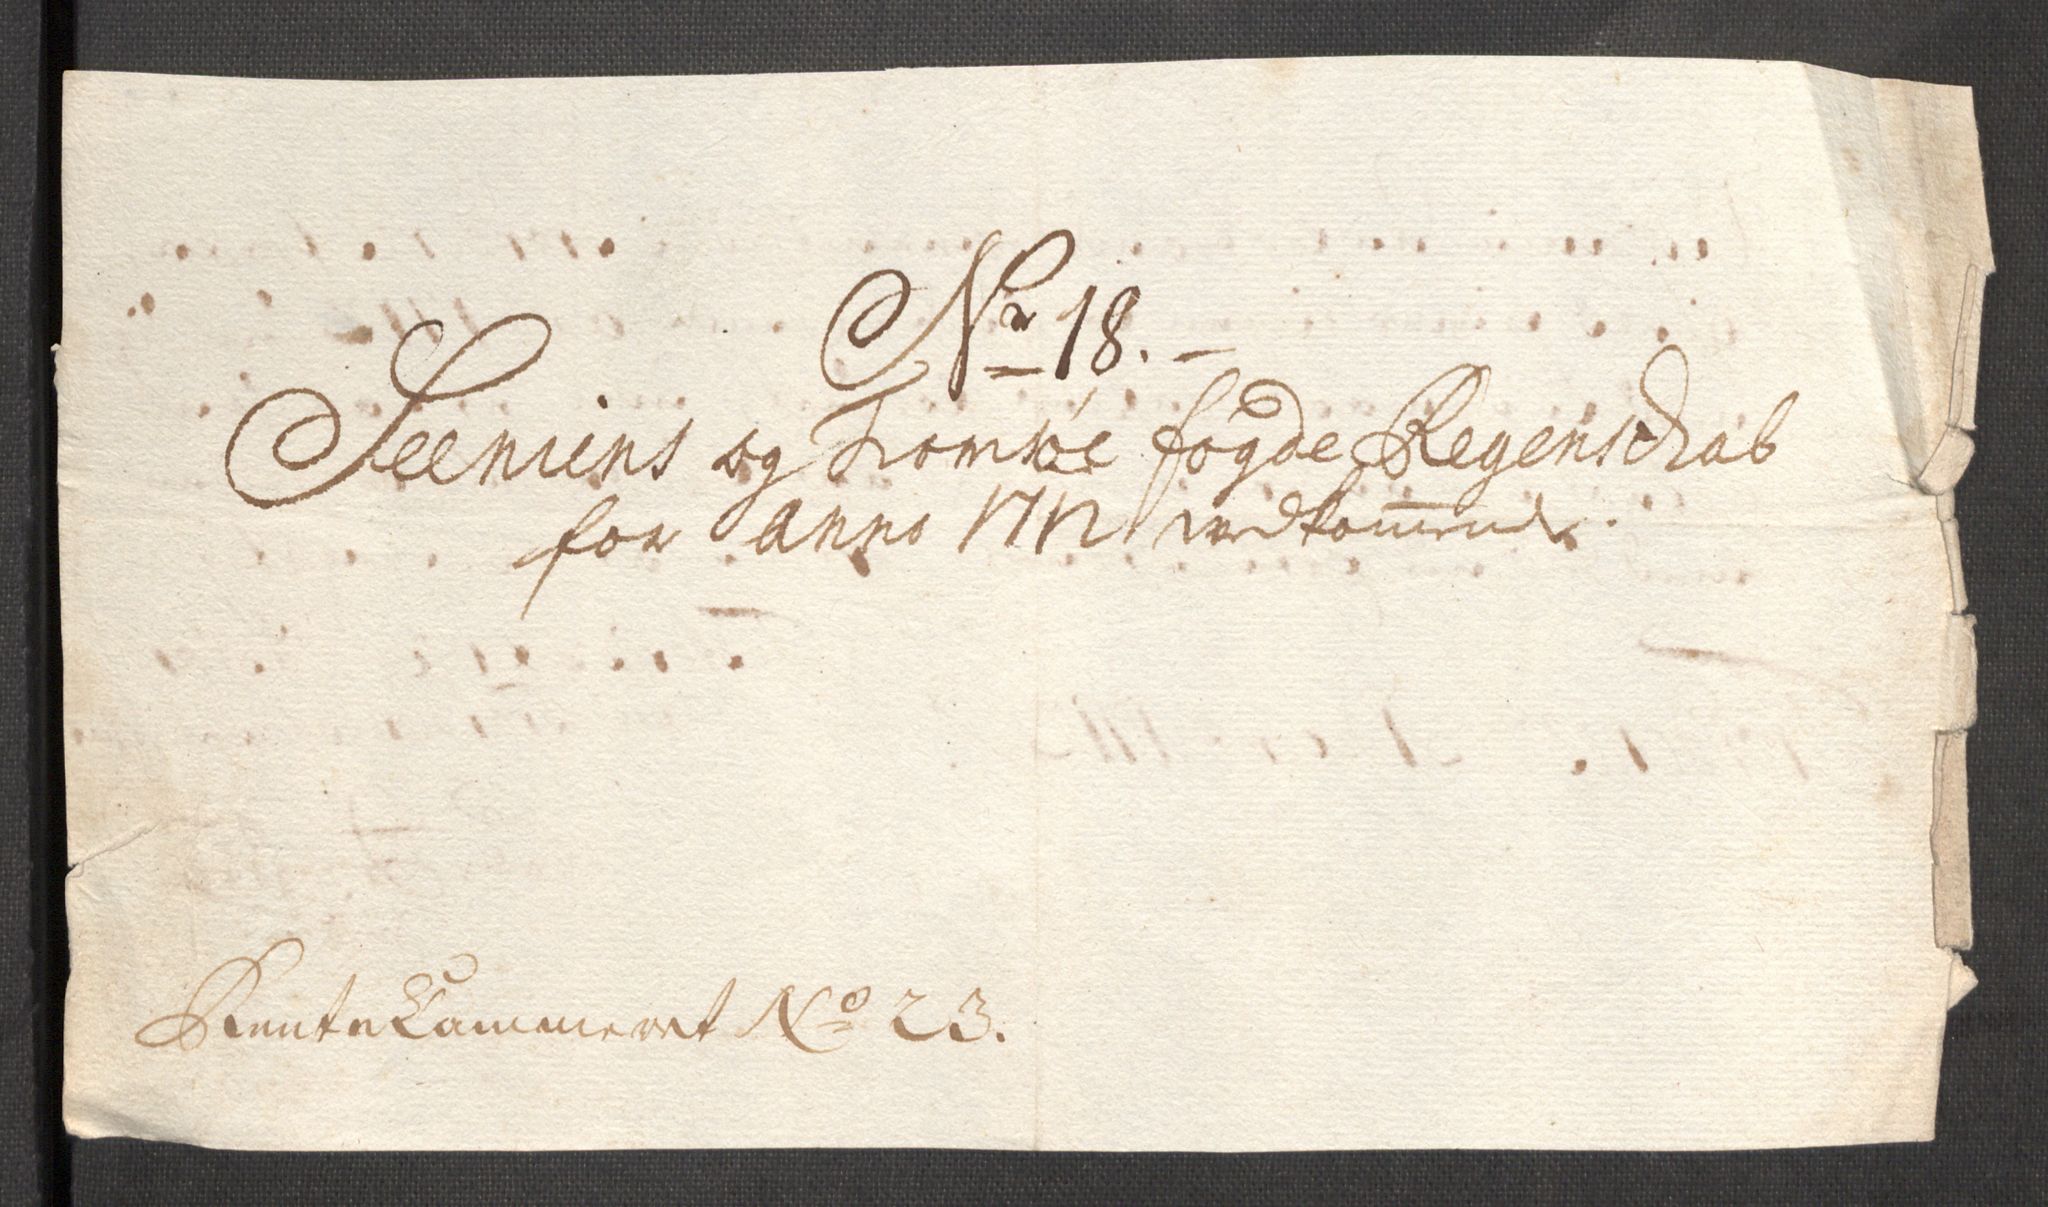 Nr 18.
Seeniens og Tromsøe fogde Regenschab
for Anno 1712 vedkommende.
Rente Cammeret No 23.